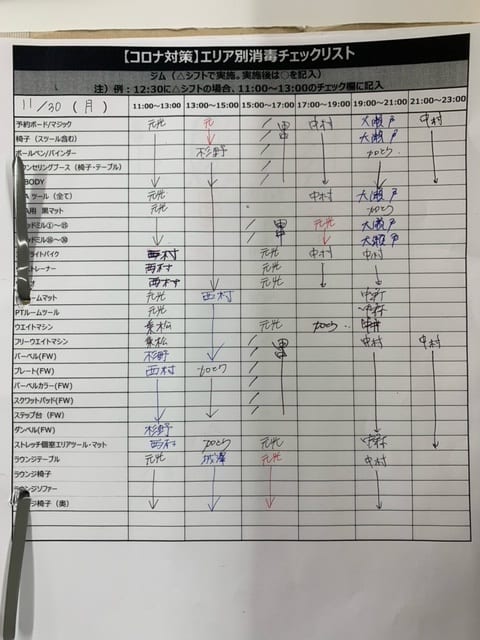 【コロナ対策】エリア別消毒チェックリスト
ジム（△シフトで実施。実施後は○を記入）
注）例：12:30に△シフトの場合、11:00～13:00のチェック欄に記入
11/30（月） 11:00～13:00 13:00～15:00 15:00～17:00 17:00～19:00 19:00～21:00 21:00～23:00
予約ボード/マジック 元光 元 中村 大瀬戸 中村
椅子（スツール含む） 大瀬戸
ボールペン/バインダー 杉野 かとう
ウンセリングブース（椅子・テーブル）
BODY
ツール（全て） 元光 中村 大瀬戸
用 黒マット 元光 かとう
ッドミル①～⑮ 元光 大瀬戸
ッドミル⑯～㉚ 大瀬戸
ライトバイク 西村 元光 中村 中村
トレーナー 西村 元光
西村 元光
ームマット 元光 西村 中森
PTルームツール 元光 中森
ウエイトマシン 乗松 元光 かとう
フリーウエイトマシン 乗松 中村 中村
バーベル(FW) 杉野
プレート(FW) 西村 かとう
バーベルカラー(FW)
スクワットパッド(FW)
ステップ台（FW）
ダンベル(FW) 杉野
ストレッチ個室エリアツール・マット 西村 かとう 元光 中森
ラウンジテーブル 元光 元光 中村
ラウンジ椅子
ラウンジソファー
ジ椅子（奥）